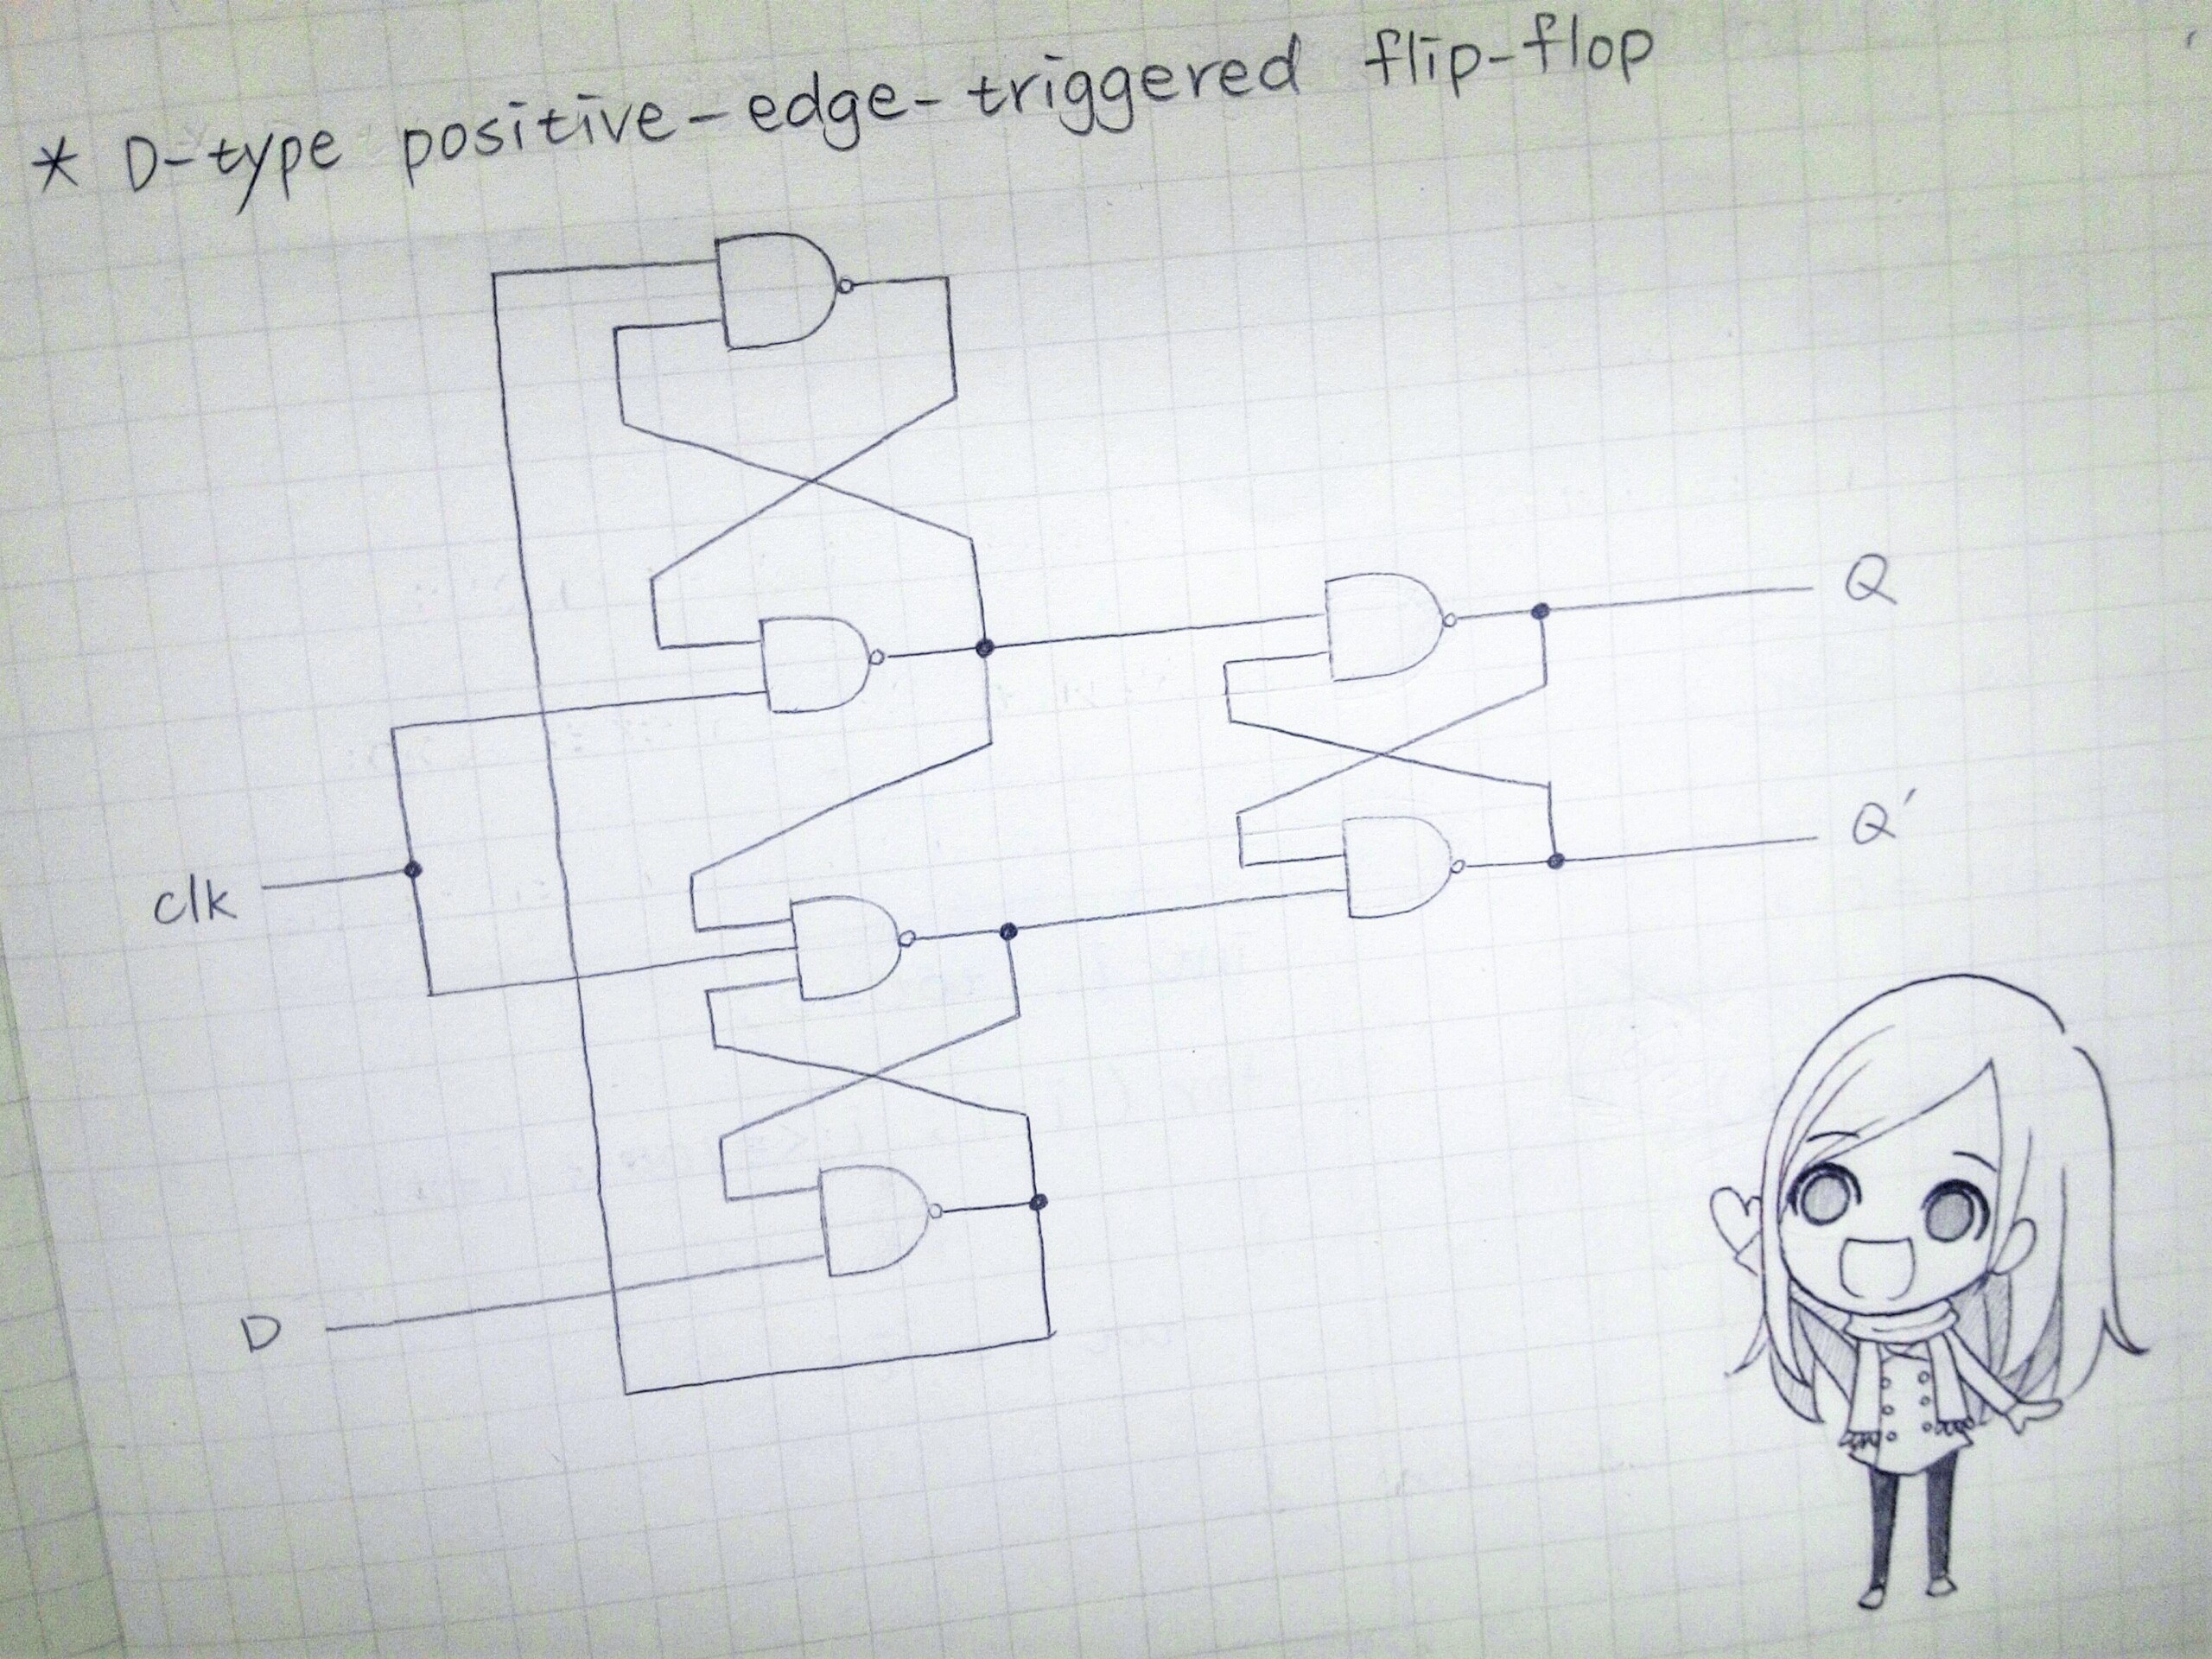 * D-type positive-edge-triggered flip-flop
Q
Q'
clk
D